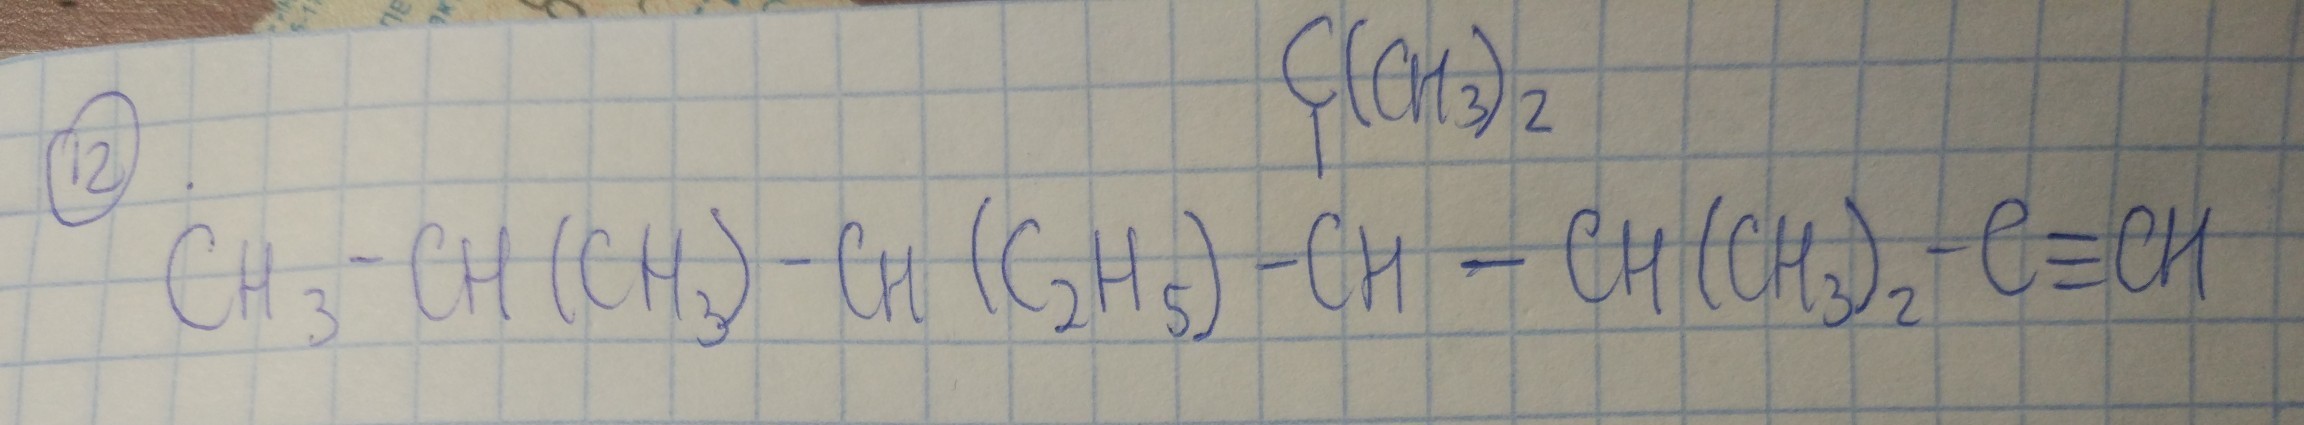 C(CH₃)₂
12
CH₃-CH(CH₃)-CH(C₂H₅)-CH-CH(CH₃)₂-C≡CH